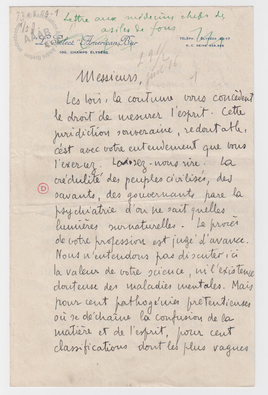 Lettre aux médecins chefs des
asiles de fous
Le Select American Bar
Messieurs,
Les lois, la coutume vous concèdent
le droit de mesurer l'esprit. Cette
juridiction souveraine, redoutable,
c'est avec votre entendement que vous
l'exercez. Laissez-nous rire. La
crédulité des peuples civilisés, des
savants, des gouvernants pare la
psychiatrie d'on ne sait quelles
lumières surnaturelles. Le procès
de votre profession est jugé d'avance.
Nous n'entendons pas discuter ici
la valeur de votre science, ni l'existence
douteuse des maladies mentales. Mais
pour cent pathogénies prétentieuses
où se déchaîne la confusion de la
matière et de l'esprit, pour cent
classifications dont les plus vagues